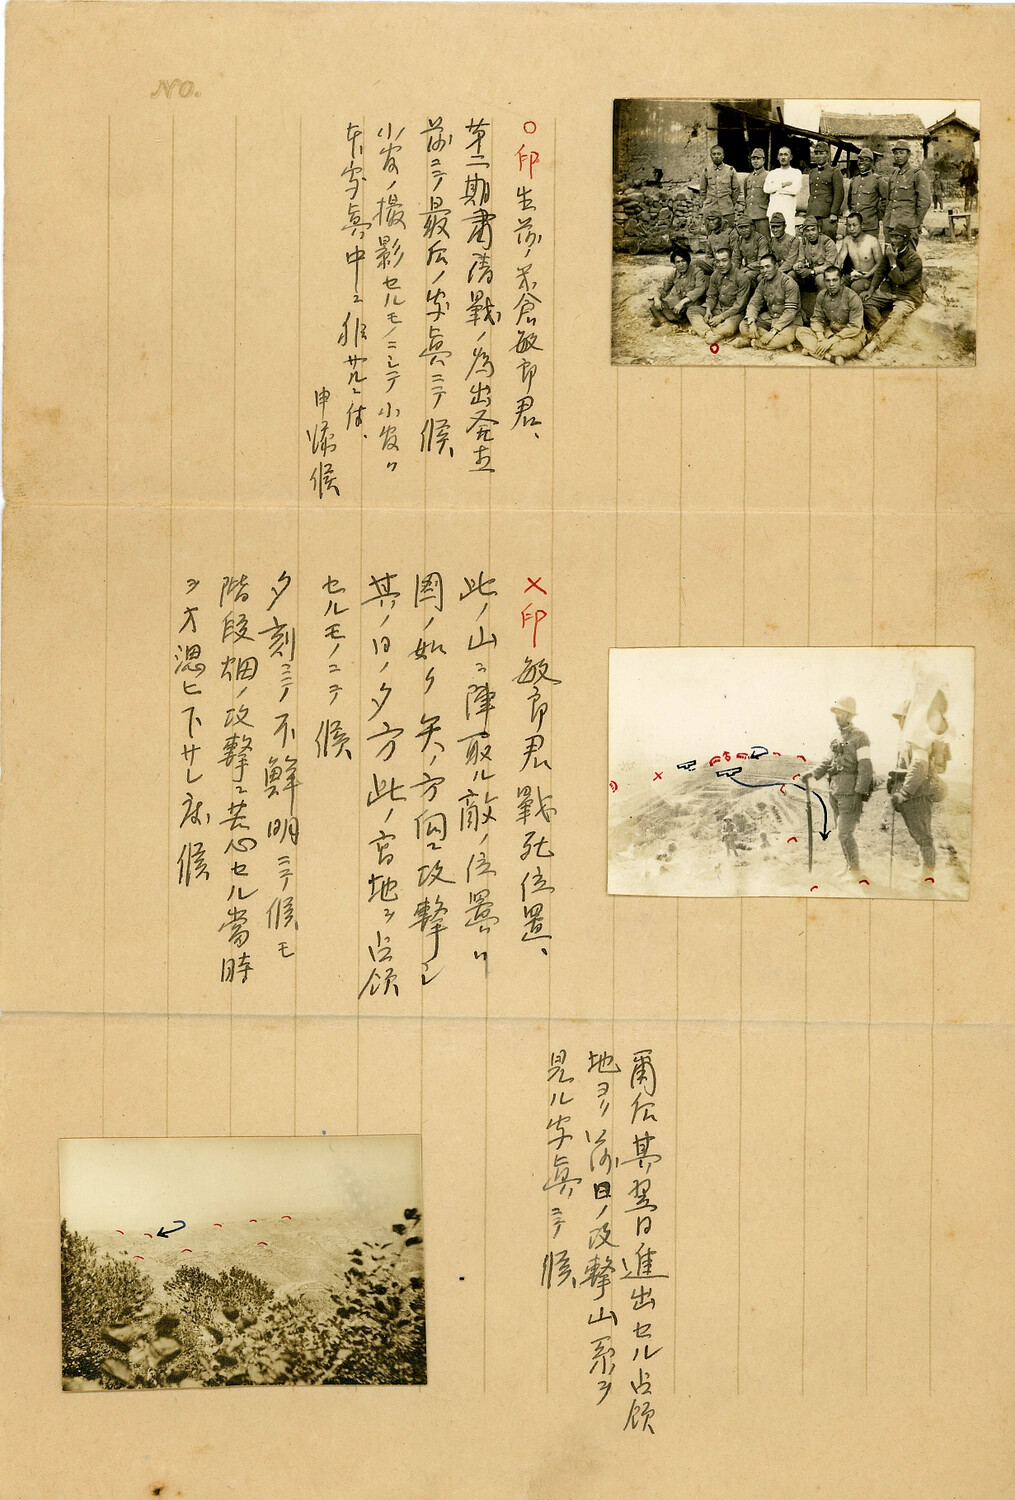 NO.
○印 生前ノ米倉敏郎君、
第二期粛清戦ノ為出発直
前ニテ最后ノ写真ニテ候
小官ノ撮影セルモノニシテ小官ハ
本写真中ニ

申添候
×印 敏郎君戦死位置、
此ノ山ニ陣取ル敵ノ位置ハ
図ノ如ク矢ノ方向ニ攻撃シ
其ノ日ノ夕方此ノ高地ヲ占領
セルモノニテ候
夕刻ニテ不鮮明ニテ候モ
階段畑ノ攻撃ニ苦心セル當時
ヲ 思ヒ下サレ度候
爾后其翌日進出セル占領
地ヨリ前日ノ攻撃山系ヲ
見ル写真ニテ候